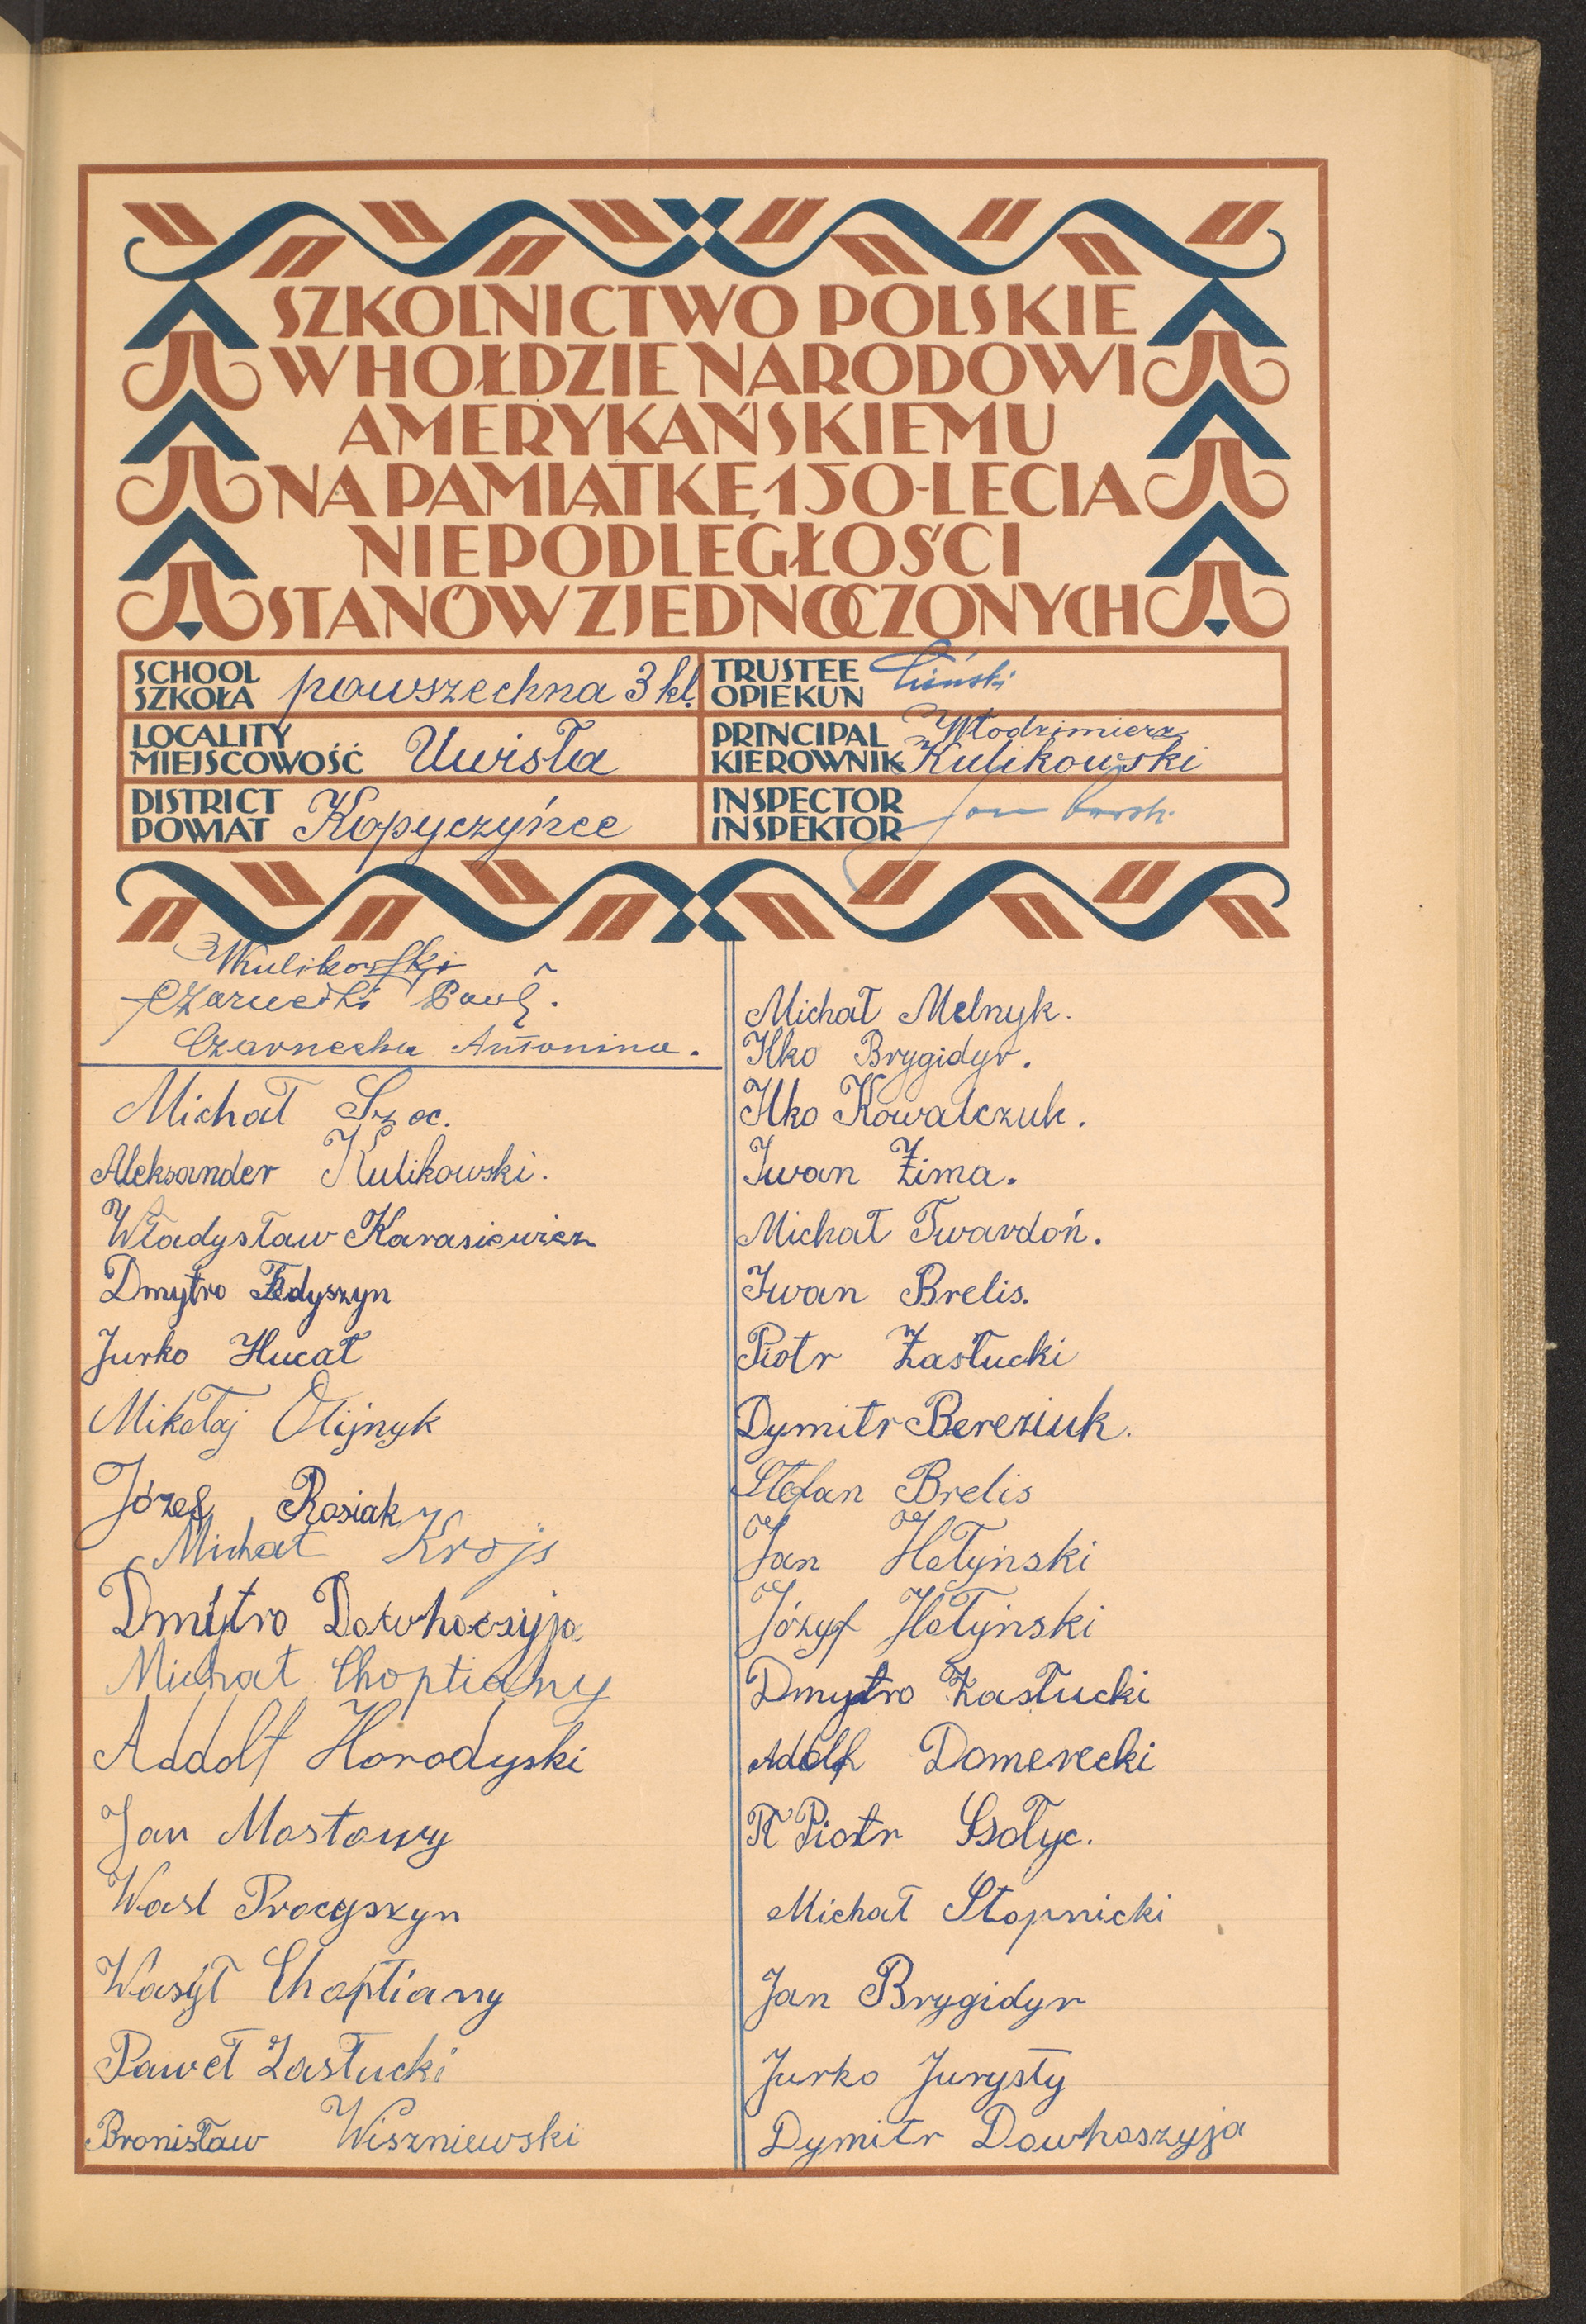 SZKOLNICTWO POLSKIE
W HOŁDZIE NARODOWI
AMERYKAŃSKIEMU
NA PAMIĄTKĘ 150-LECIA
NIEPODLEGŁOŚCI
STANÓW ZJEDNOCZONYCH
SCHOOL
SZKOŁA powszechna 3 kl.
TRUSTEE
OPIEKUN
LOCALITY
MIEJSCOWOŚĆ Uwisła
PRINCIPAL Włodzimierz
KIEROWNIK Kulikowski
DISTRICT
POWIAT Kopyczyńce
INSPECTOR
INSPEKTOR Jan
WKulikowski
Czarnecki Paweł.
Czarnecka Antonina.
Michał Szoc.
Aleksander Kulikowski.
Władysław Karasiewicz
Dmytro Fedyszyn
Jurko Hucał
Mikołaj Olijnyk
Józef Rosiak
Michał Krojs
Dmytro Dowhoszyja
Michał Choptiany
Adolf Horodyski
Jan Mostowy
Wasl Procyszyn
Wasył Choptiany
Paweł Zasłucki
Bronisław Wiszniewski
Michał Melnyk.
Ilko Brygidyr.
Ilko Kowalczuk.
Iwan Zima.
Michał Twardoń.
Iwan Brelis.
Piotr Zasłucki
Dymitr Bereziuk.
Stefan Brelis
Jan Hołyński
Józyf Hołyński
Dmytro Zasłucki
Adolf Domerecki
Piotr Gsołyc.
Michał Stopnicki
Jan Brygidyr
Jurko Jurysty
Dymitr Dowhoszyja